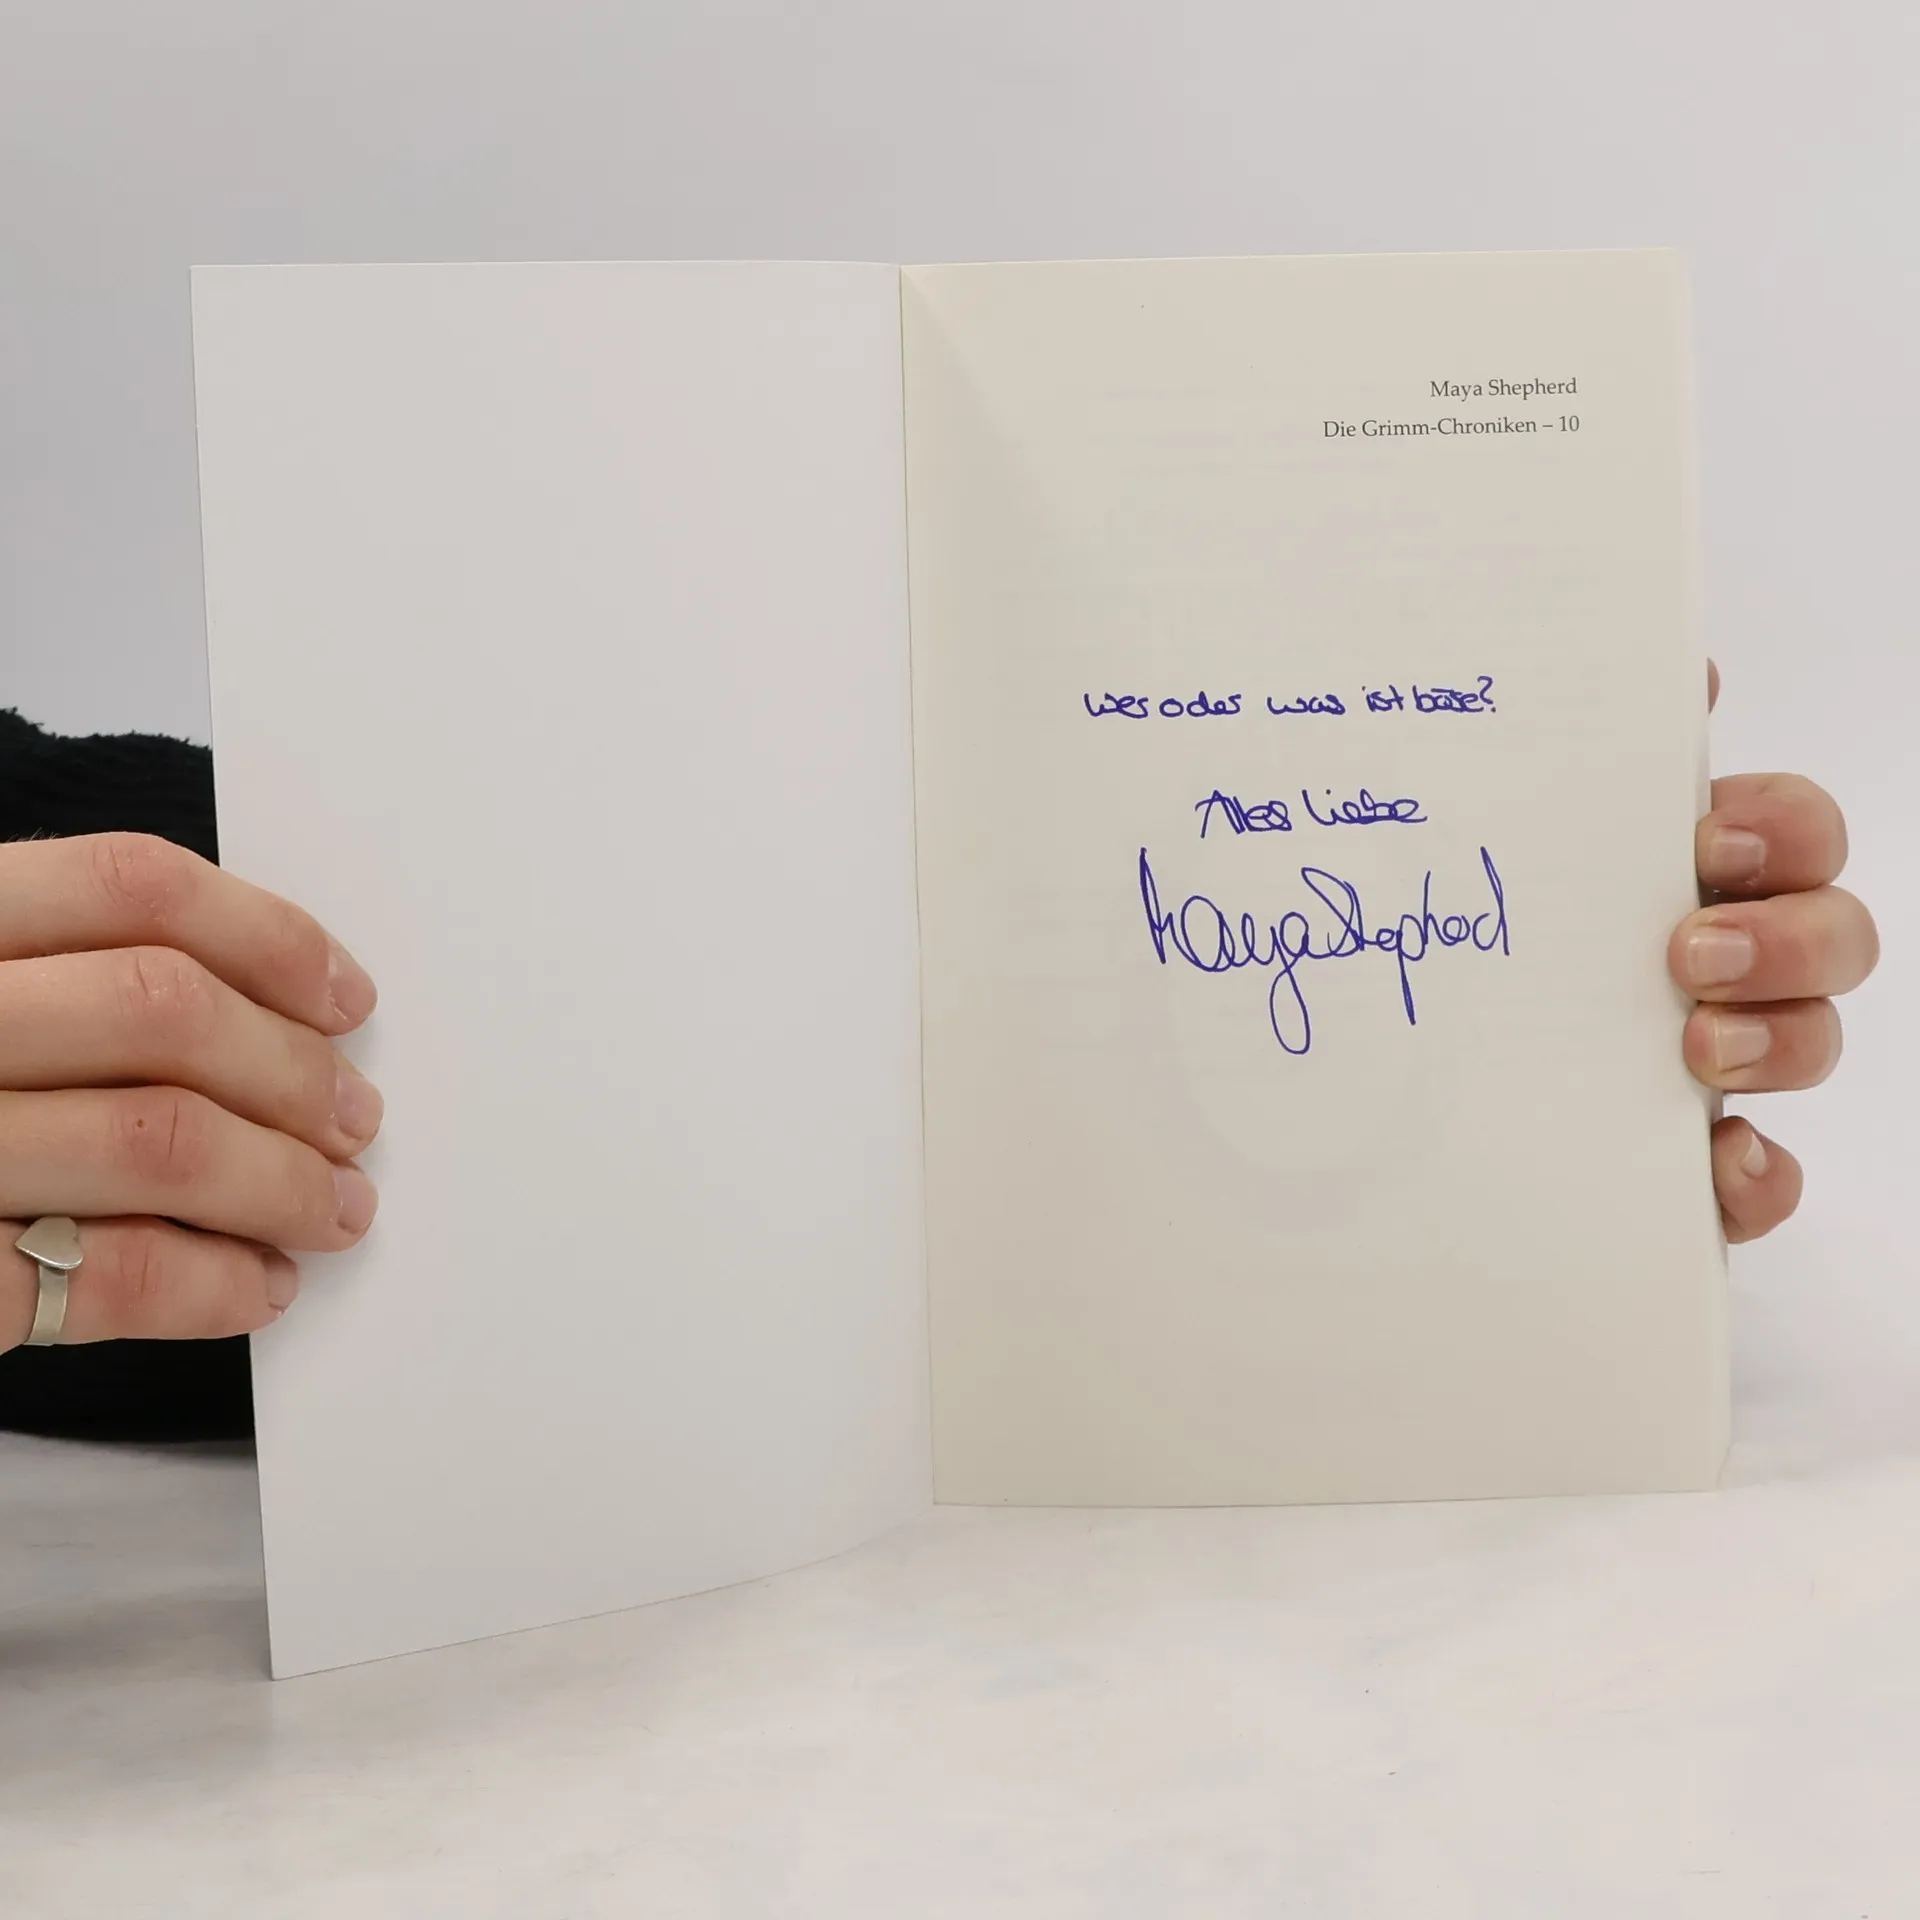 Maya Shepherd
Die Grimm-Chroniken – 10
Wer oder was ist böse?
Alles Liebe
Maya Shepherd